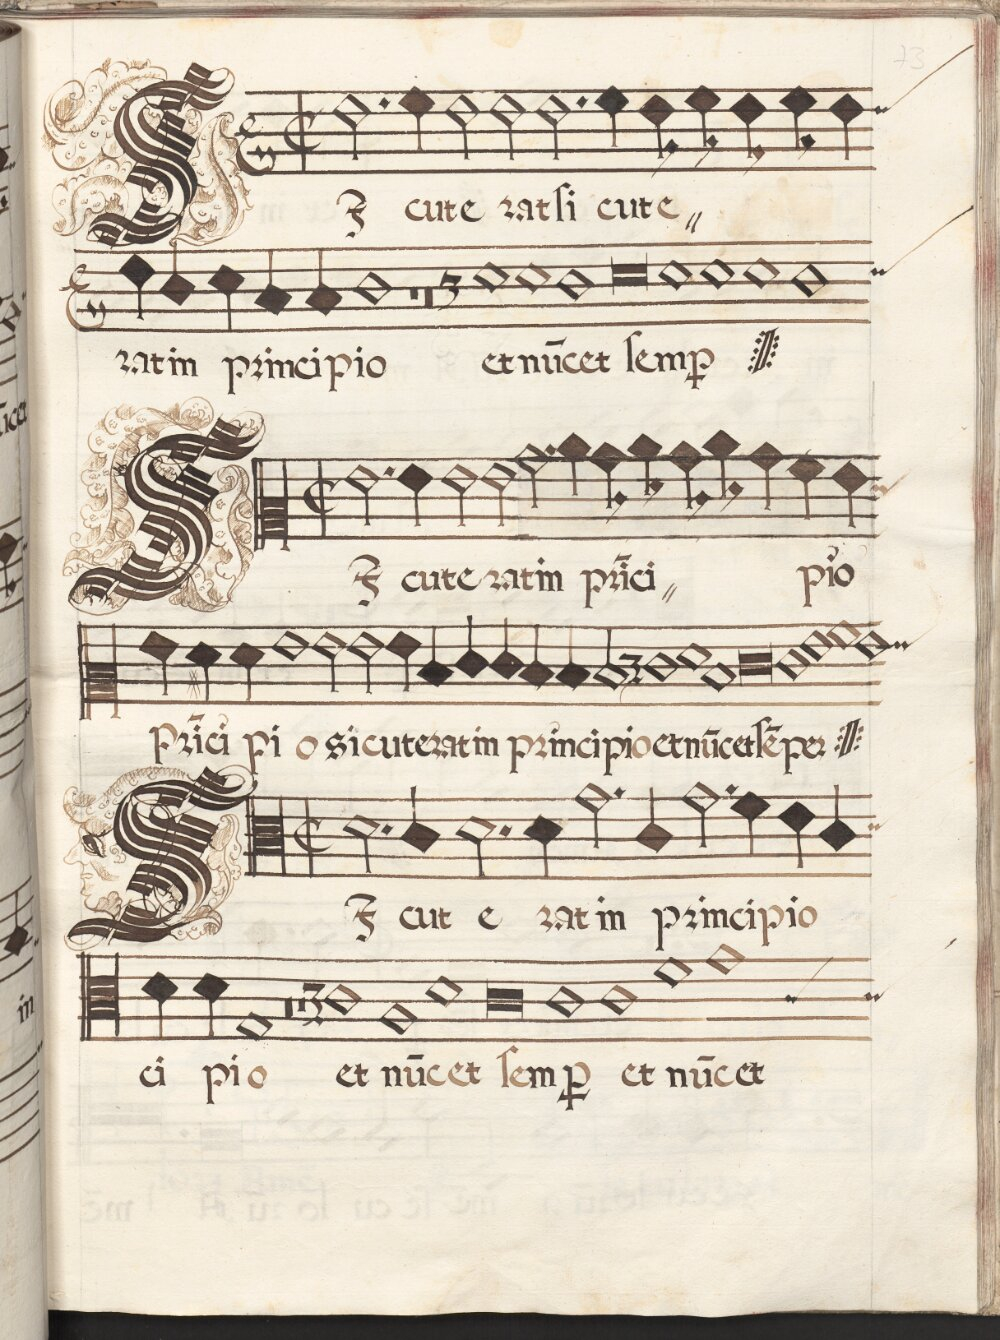 73
S I cute ratsi cute
ratin principio et nūc et semꝑ
S I cute ratin prīci pio
prīci pi o sicuteratin principio et nūc et sēper
S I cut e rat in principio
ci pio et nūc et semꝑ et nūc et
in